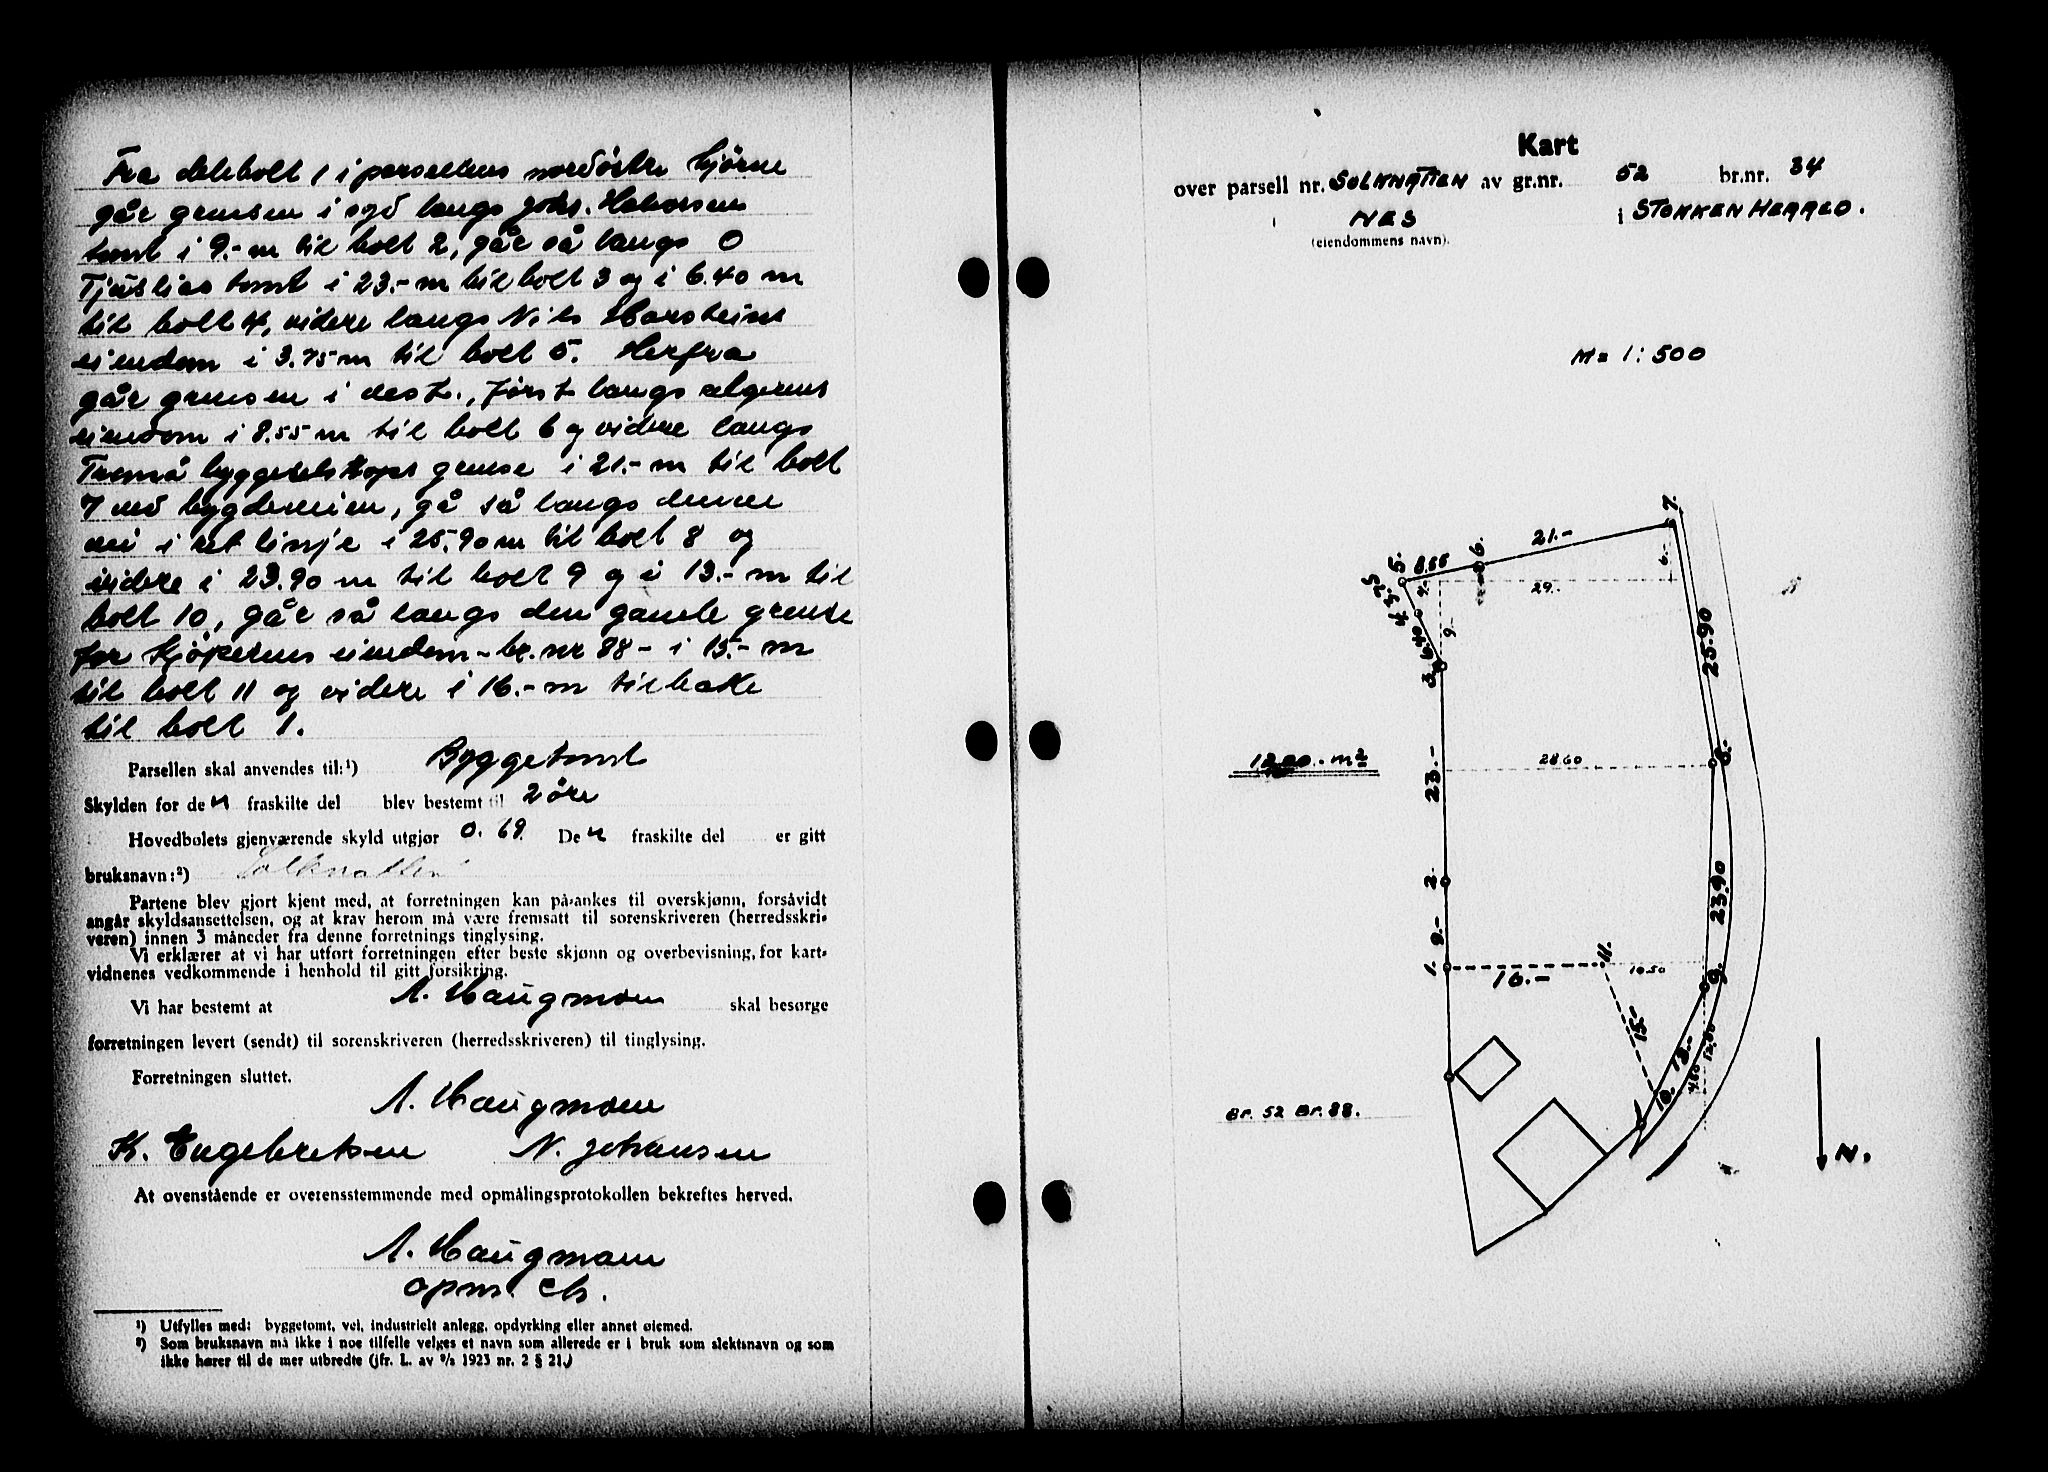 Fra delebolt 1 i parsellens nordöstre hjörne
går grensen i syd langs Johs. Halvorsens
tomt i 9.- m til bolt 2, går så langs O
tomt i 23.- m til bolt 3 og i 6.40 m
til bolt 4, videre langs Nils
eiendom i 3.75 m til bolt 5. Herfra
går grensen i vest., först langs selgerens
eiendom i 8.55 m til bolt 6 og videre langs
Tromå byggeselskaps grense i 21.- m til bolt
7 ved bygdeveien, gå så langs denne
vei i ret linje i 25.90 m til bolt 8 og
videre i 23.90 m til bolt 9 og i 13.- m til
bolt 10, går så langs den gamle grense
for kjøperens eiendom - br. nr 88 - i 15.- m
til bolt 11 og videre i 16.- m tilbake
til bolt 1.
Parsellen skal anvendes til:¹) Byggetomt
Skylden for den fraskilte del blev bestemt til 2 öre
Hovedbølets gjenværende skyld utgjør 0.69. Den fraskilte del er gitt
bruksnavn:²) Solknatten
Partene blev gjort kjent med, at forretningen kan på-ankes til overskjønn, forsåvidt
angår skyldsansettelsen, og at krav herom må være fremsatt til sorenskriveren (herredsskri-
veren) innen 3 måneder fra denne forretnings tinglysing.
Vi erklærer at vi har utført forretningen efter beste skjønn og overbevisning, for kart-
vidnenes vedkommende i henhold til gitt forsikring.
Vi har bestemt at A. Haugmoen skal besørge
forretningen levert (sendt) til sorenskriveren (herredsskriveren) til tinglysing.
Forretningen sluttet.
A. Haugmoen
K. Engebretsen N. Johansen
At ovenstående er overensstemmende med opmålingsprotokollen bekreftes herved.
A. Haugmoen
opm. ch.
¹) Utfylles med: byggetomt, vei, industrielt anlegg, opdyrking eller annet øiemed.
²) Som bruksnavn må ikke i noe tilfelle velges et navn som allerede er i bruk som slektsnavn og som
ikke hører til de mer utbredte (jfr. L. av 9/2 1923 nr. 2 § 21.)
Kart
over parsell nr. SOLKNATTEN av gr.nr. 52 br.nr. 34
NES i STOKKEN HERRED.
(eiendommens navn).
M = 1:500
7.
21.-
6.
8.55
5.
6.-
29.-
3.75
4.
9.-
6.40
3.
25.90
8.-
1200.- m²
28.60
23.-
23.90
2.
9.-
1.
11.
16.-
10.50
9.
15.-
13.-
12.20
4.60
10.
Gr. 52 Br. 88.
N.